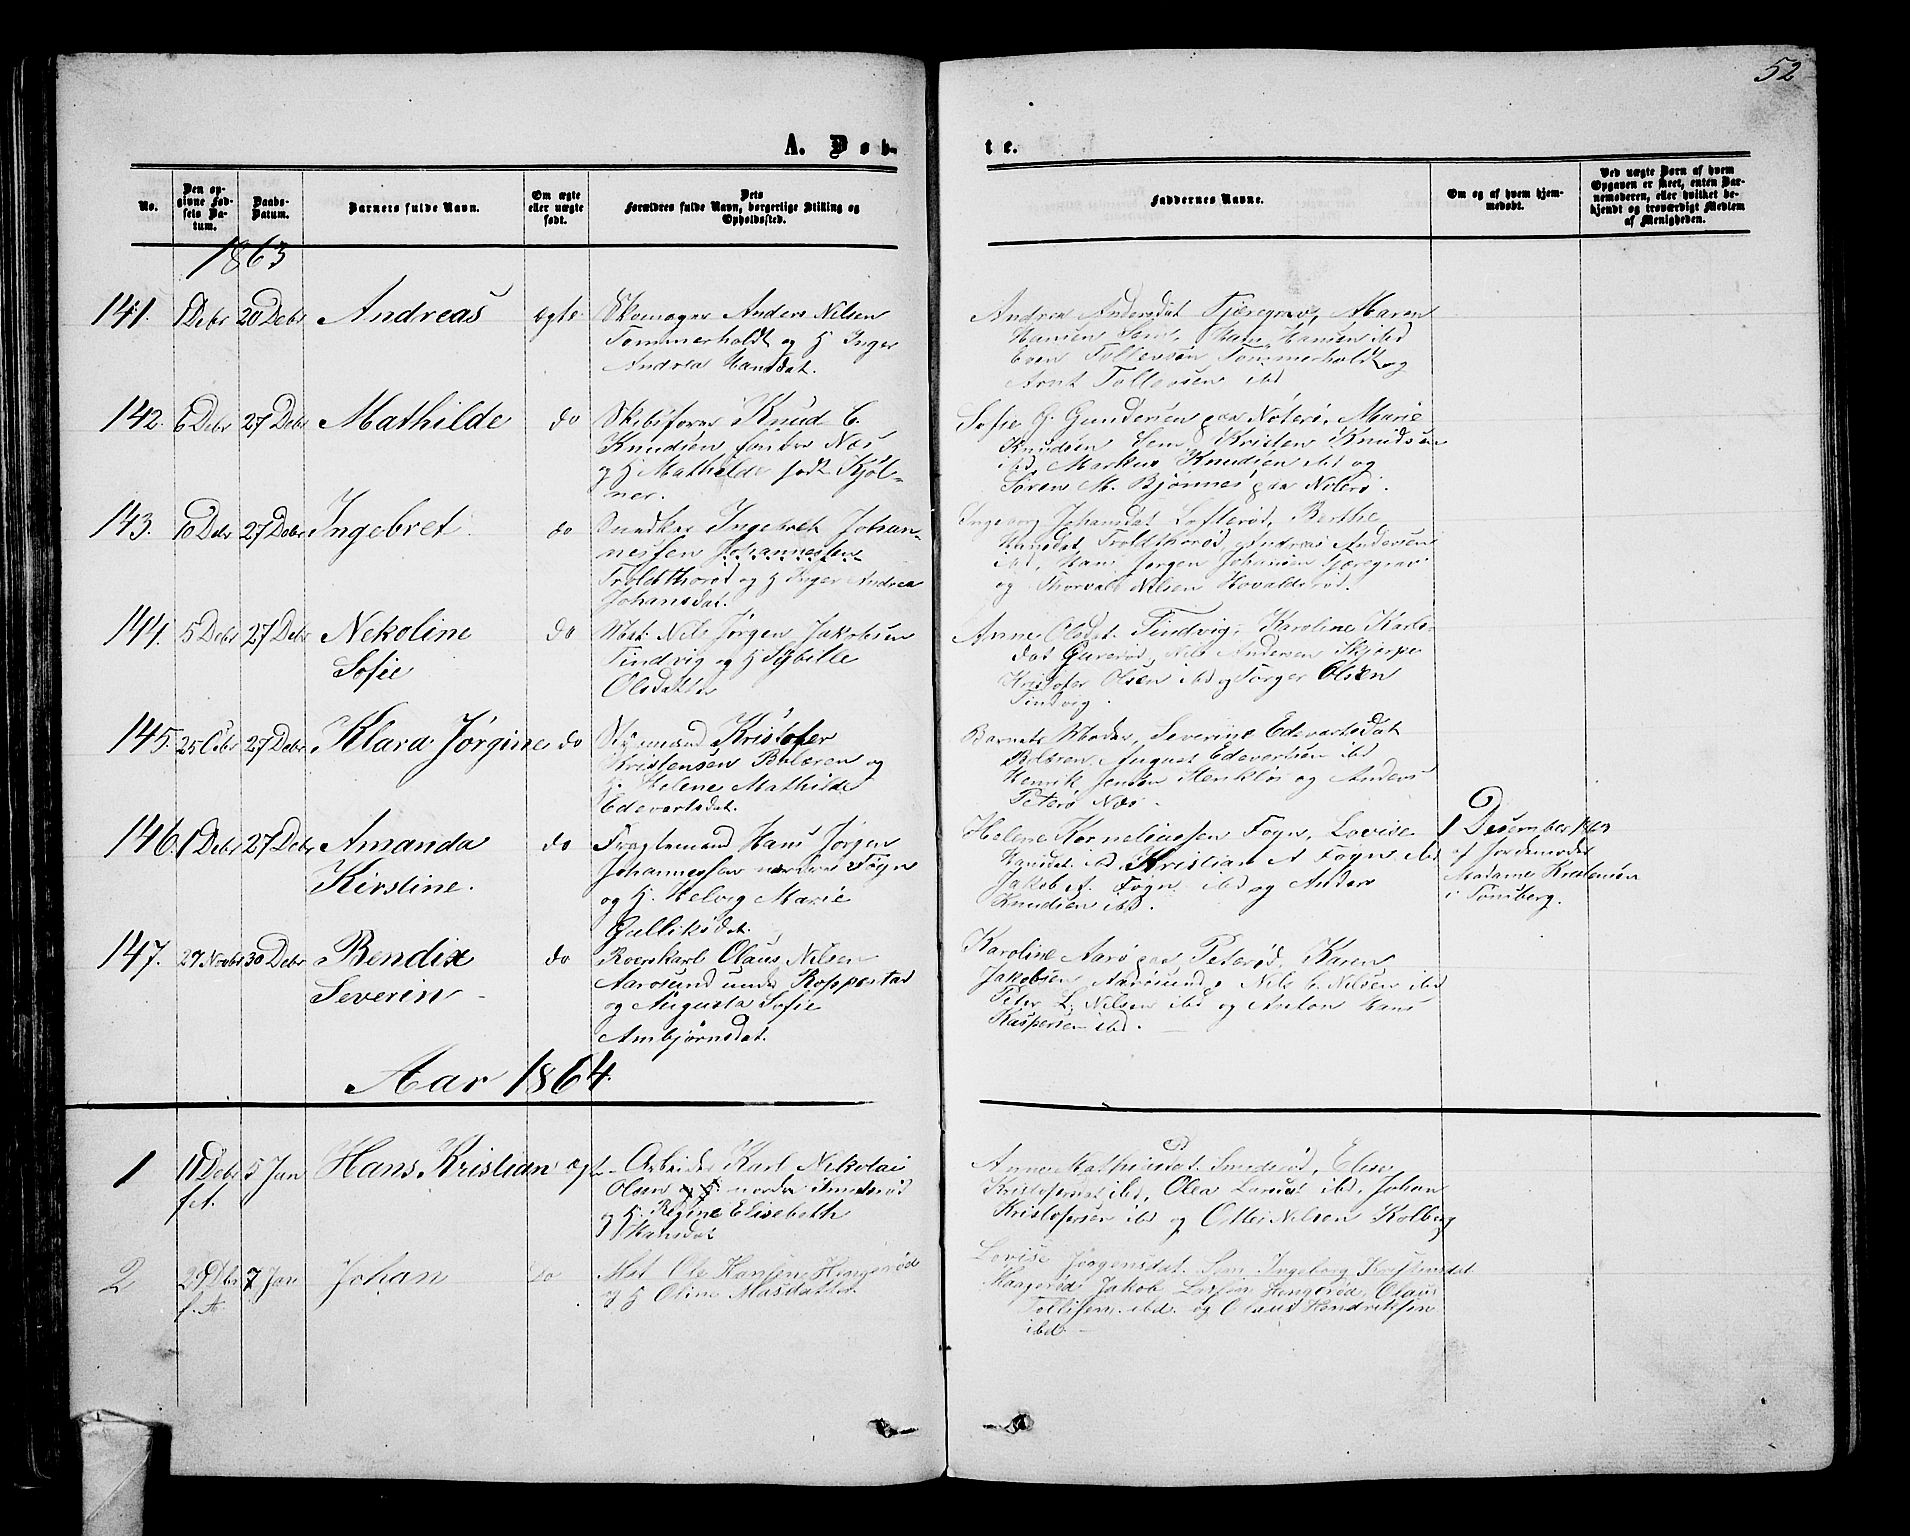 52
A. Døb-
te.
No.
Den op-
givne Fød-
sels Da-
tum.
Daabs-
Datum.
Barnets fulde Navn.
Om ægte
eller uægte
født.
Dets
Forældres fulde Navn, borgerlige Stilling og
Opholdssted.
Faddernes Navne.
Om og af hvem hjem-
medøbt.
Ved uægte Børn af hvem
Opgaven er skeet, enten Bar-
nemoderen, eller hvilket be-
kjendt og troværdigt Medlem
af Menigheden.
1863
141. 1 Debr 20 Debr Andreas ægte
Skomager Anders Nilsen
Tommerholdt og H Inger
Andrea Hansdat.
Andrea Andersdat Fjæregrav, Maren
Hansen Sem, Hans Hansen ibd
Even Tollevsen Tommerholdt og
Arnt Tollevsen ibd
142. 6 Debr 27 Debr Mathilde do
Skibsfører Knud C.
Knudsen Næs
og H Mathilde født Kjøl-
ner.
Sofie G. Gundersen paa Nøterø, Marie
Knudsen Sem, Kristen Knudsen
ibd, Markus Knudsen ibd og
Søren M. Bjønnes paa Nøterø.
143. 10 Debr 27 Debr Ingebret do
Ingebret Johan-
nessen Johannessen
Troldthorød og H Inger Andrea
Johansdat.
Ingeborg Johansdat Lofterød, Berthe
Hansdat Troldthorød, Andreas Andersen
ibd, Hans Jørgen Johansen Fjæregrav
og Thorvald Nilsen
144. 5 Debr 27 Debr Nekoline do
Sofie
Mat: Nils Jørgen Jakobsen
Tindvig og H Sybille
Olsdatter
Anne Olsdat. Tindvig, Karoline Karls-
dat Gurerød, Nils Andersen Skjerpe
Kristofer Olsen ibd og Torger Olsen
Tindvig.
145. 25 27 Debr Klara Jørgine do
Styrmand Kristofer
Kristensen Bulæren og
H. Helene Mathilde
Edevartsdat.
Barnets Moder, Severine Edevartsdat
Bulæren, August Edevertsen ibd
Henrik Jensen og Anders
Peterø Næs.
146. 1 Debr 27 Debr Amanda do
Kirstine.
Fragtemand Hans Jørgen
Johannessen nordre Føgn
og H. Helvig Marie
Gulliksdat.
Helene Korneliussen Fogn, Lovise
Hansdat ibd, Kristian A Fogn ibd
Jakob A. Fogn ibd og Anders
Knudsen ibd.
1 Desember 1863
af Jordemoder
Madame Kristensen
i Tønsberg.
147. 29 Novbr 30 Debr Bendix do
Severin
Roerskarl Olaus Nilsen
Aarøsund under Roppestad
og Augusta Sofie
Ambjørnsdat.
Karoline Aarø paa Peterød, Karen
Jakobsen Aarøsund, Nils C. Nilsen ibd
Peter L. Nilsen ibd og Anton Hans
Kaspersen ibd.
Aar 1864.
1 11 Debr 5 Jan Hans Kristian ægt
f A.
Arbeider Karl Nikolai
Olsen nordre Smederød
og H. Regine Elisebeth
Hansdat
Anne Mathiasdat. Smederød, Elen
Kristofersdat ibd, Olea Larsdat ibd, Johan
Kristofersen ibd og Otter Nilsen Kolberg
2 29 Dbr 7 Jan Johan do
f. A.
Mat Ole Hansen Hengerød
og H Oline Masdatter
Lovise Jørgensdat. Sem Ingeborg Kristensdat
Haagerød, Jakob Larsen Hengerød, Olaus
Tollefsen ibd. og Olaus Hendriksen
ibd.